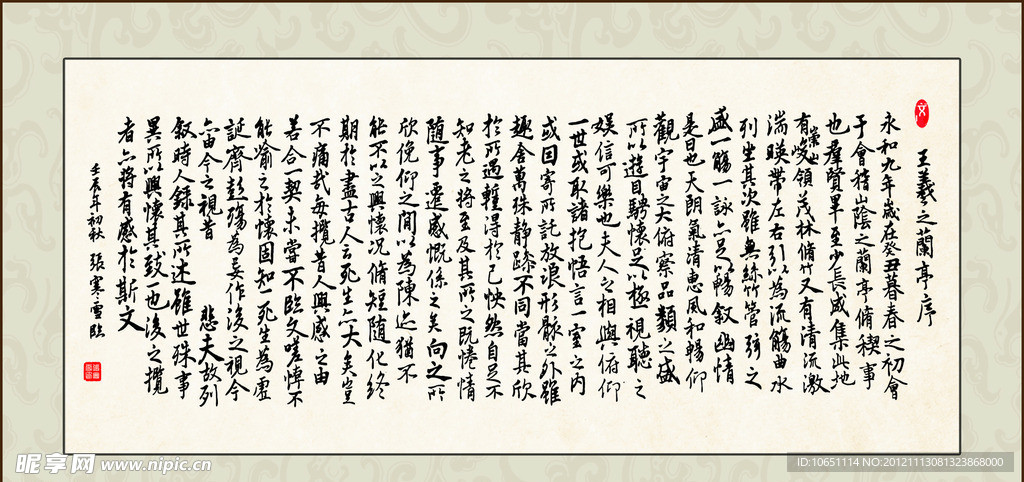 王羲之蘭亭序
永和九年歲在癸丑暮春之初會
于會稽山陰之蘭亭脩稧事
也羣賢畢至少長咸集此地
有崇山峻領茂林脩竹又有清流激
湍暎帶左右引以為流觴曲水
列坐其次雖無絲竹管弦之
盛一觴一詠亦足以暢敘幽情
是日也天朗氣清惠風和暢仰
觀宇宙之大俯察品類之盛
所以遊目騁懷足以極視聽之
娛信可樂也夫人之相與俯仰
一世或取諸抱悟言一室之內
或因寄所託放浪形骸之外雖
趣舍萬殊静躁不同當其欣
於所遇蹔得於己怏然自足不
知老之將至及其所之既惓情
随事遷感慨係之矣向之所
欣俛仰之閒以為陳迹猶不
能不以之興懷况脩短随化終
期於盡古人云死生亦大矣豈
不痛哉每攬昔人興感之由
若合一契未嘗不臨文嗟悼不
能喻之於懷固知一死生為虛
誕齊彭殤為妄作後之視今
亦由今之視昔 悲夫故列
敘時人録其所述雖世殊事
異所以興懷其致一也後之攬
者亦將有感於斯文
壬辰年初秋 張寒雪臨
文
昵享网 www.nipic.cn
ID:10651114 NO:20121113081323868000